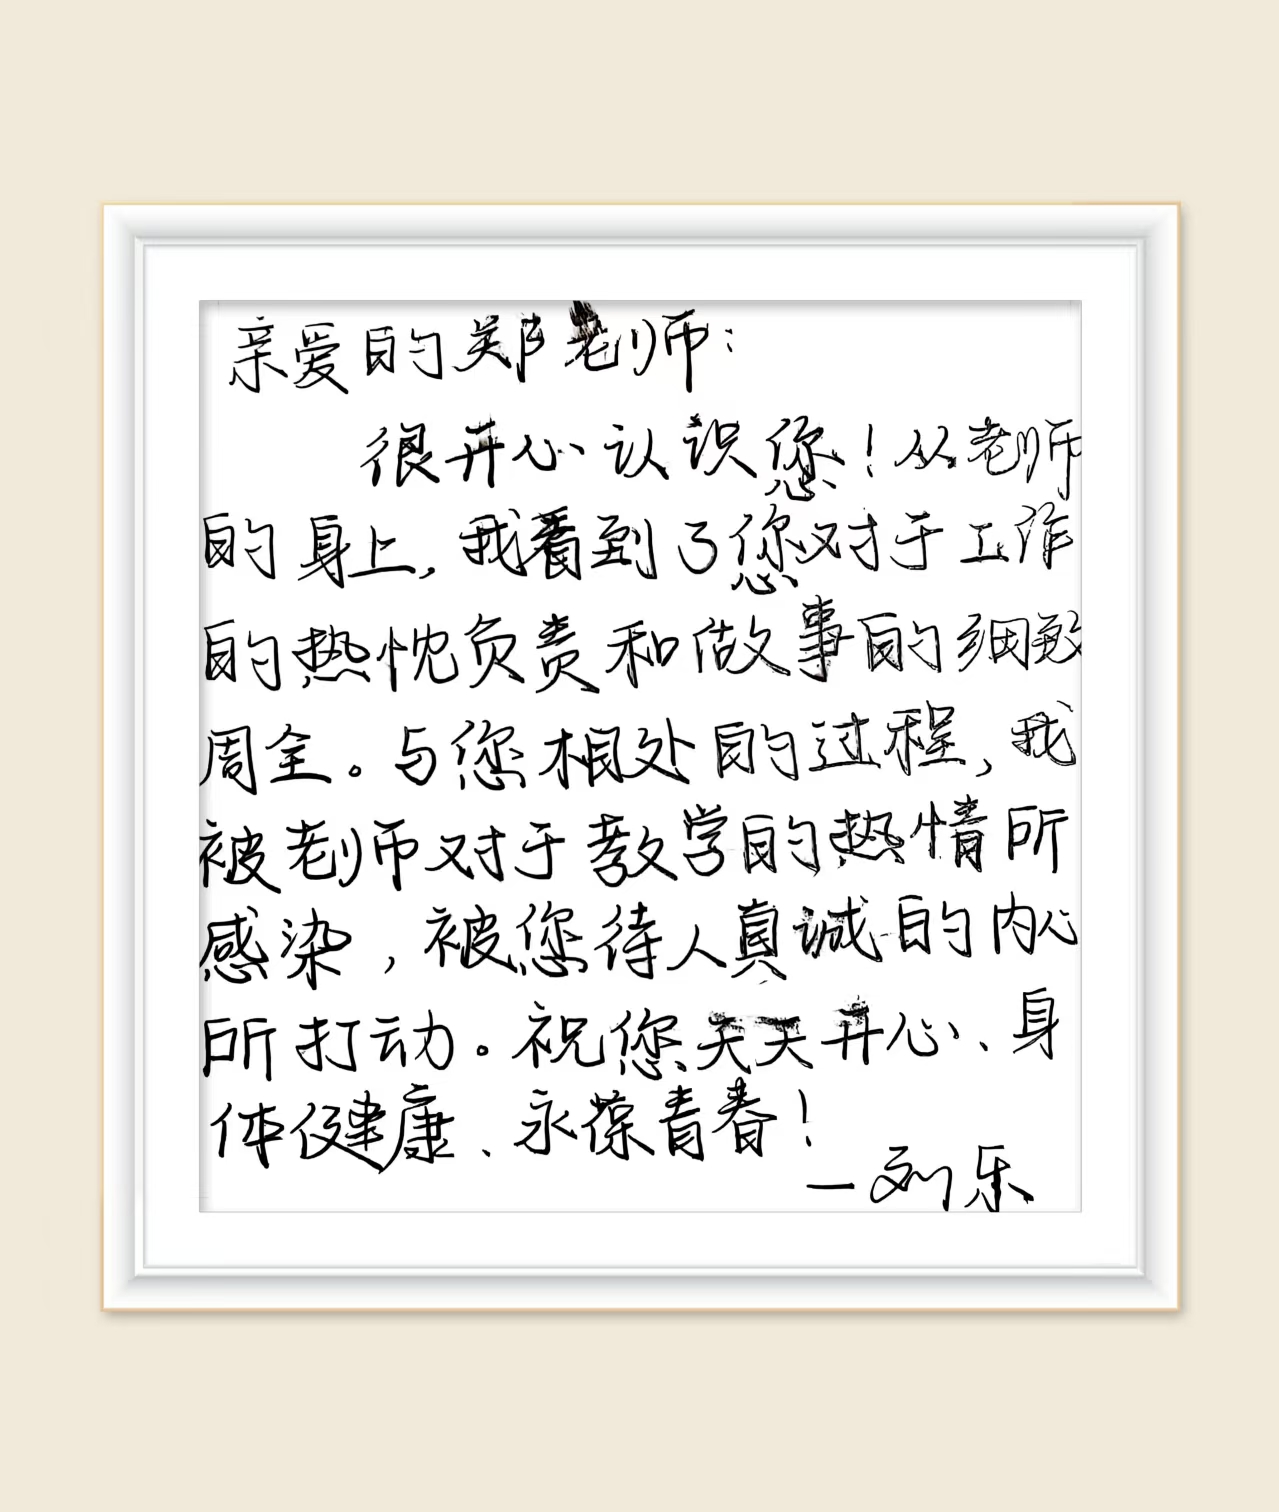 亲爱的郑老师：
很开心认识您！从老师
的身上，我看到了您对于工作
的热忱负责和做事的细致
周全。与您相处的过程，我
被老师对于教学的热情所
感染，被您待人真诚的内心
所打动。祝您天天开心、身
体健康、永葆青春！
—刘乐